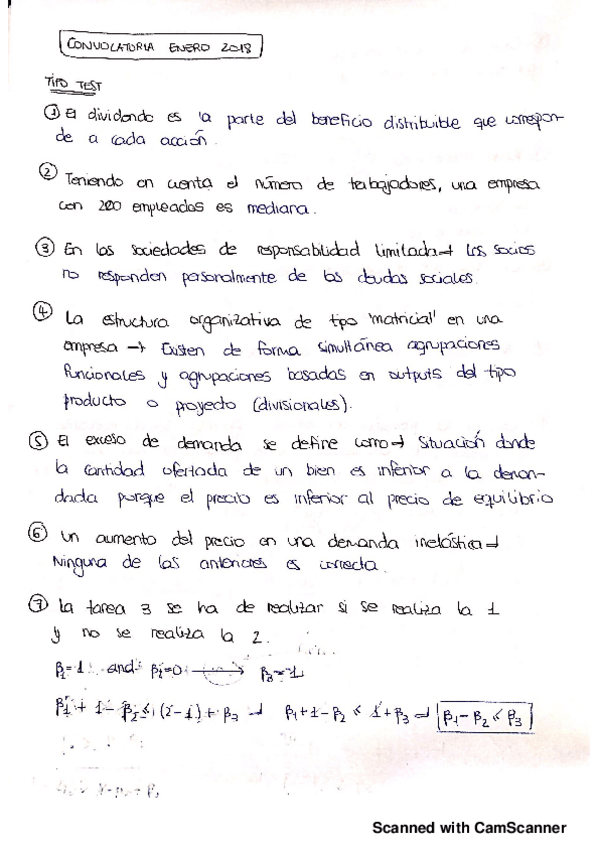 CONVOCATORIA ENERO 2018
TIPO TEST
① El dividendo es la parte del beneficio distribuible que correspon-
de a cada acción.
② Teniendo en cuenta el número de trabajadores, una empresa
con 200 empleados es mediana.
③ En las sociedades de responsabilidad limitada → los socios
no responden personalmente de las deudas sociales.
④ La estructura organizativa de tipo 'matricial' en una
empresa → Existen de forma simultánea agrupaciones
funcionales y agrupaciones basadas en outputs del tipo
producto o proyecto (divisionales).
⑤ El exceso de demanda se define como → Situación donde
la cantidad ofertada de un bien es inferior a la deman-
dada porque el precio es inferior al precio de equilibrio
⑥ Un aumento del precio en una demanda inelástica →
Ninguna de las anteriores es correcta.
⑦ La tarea 3 se ha de realizar si se realiza la 1
y no se realiza la 2.
and β₃=1
β₁ + 1 - β₂ ≤ (2-1) + β₃ → β₁+1-β₂ ≤ 1+β₃ → β₁-β₂ ≤ β₃
Scanned with CamScanner